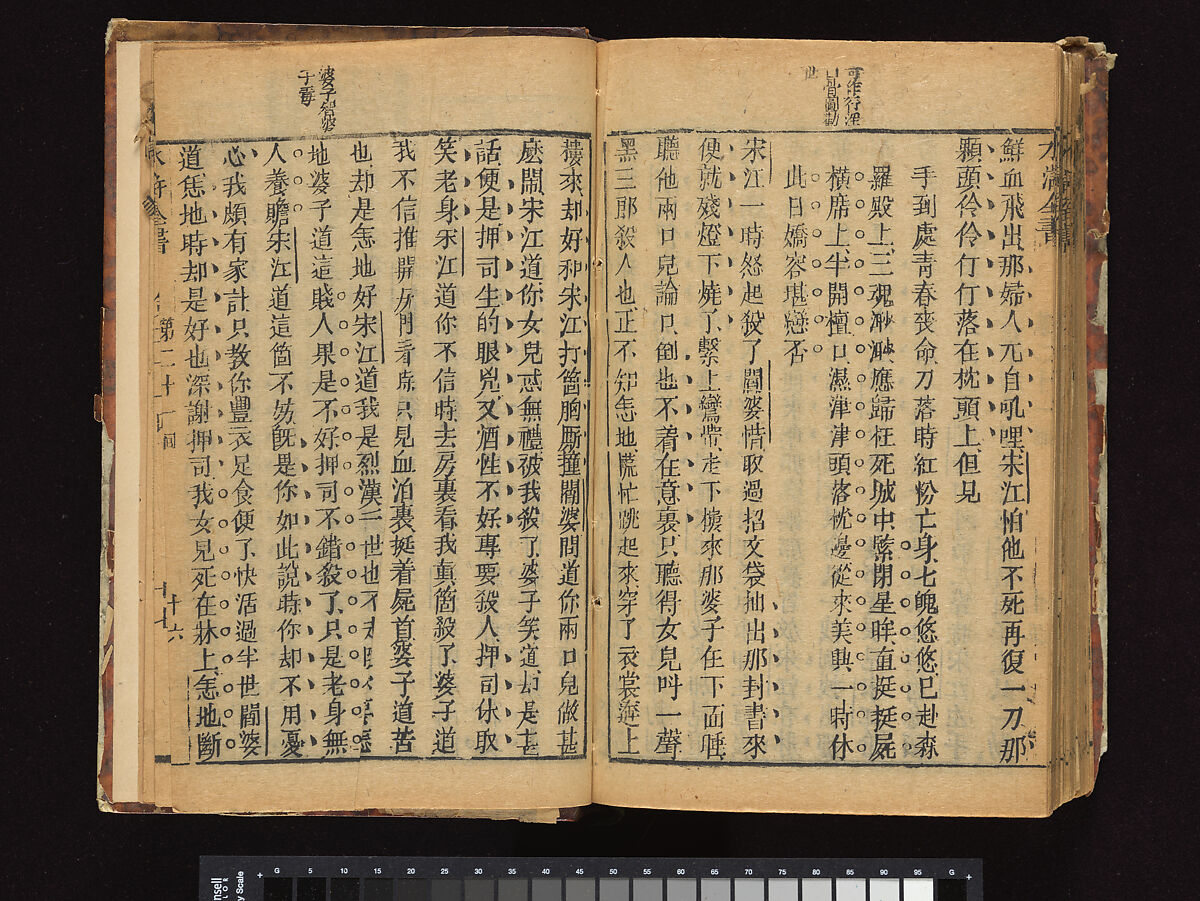 可作行淫
鮮血飛出那婦人兀自吼哩宋江怕他不死再復一刀那
顆頭伶伶仃仃落在枕頭上但見
手到處青春喪命刀落時紅粉亡身七魄悠悠已赴森
羅殿上三魂渺渺應歸枉死城中緊閉星眸直挺挺屍
橫席上半開檀口濕津津頭落枕邊從來美興一時休
此日嬌容堪戀否
宋江一時怒起殺了閻婆惜取過招文袋抽出那封書來
便就殘燈下燒了繫上鸞帶走下樓來那婆子在下面睡
聽他兩口兒論口倒也不着在意裏只聽得女兒叫一聲
黑三郎殺人也正不知怎地慌忙跳起來穿了衣裳奔上
婆子智婆
子毒
樓來却好和宋江打箇胸厮撞閻婆問道你兩口兒做甚
麽鬧宋江道你女兒忒無禮被我殺了婆子笑道却是甚
話便是押司生的眼兇又酒性不好專要殺人押司休取
笑老身宋江道你不信時去房裏看我真箇殺了婆子道
我不信推開房門看時只見血泊裏挺着屍首婆子道苦
也却是怎地好宋江道我是烈漢一世也不走
地婆子道這賤人果是不好押司不錯殺了只是老身無
人養贍宋江道這箇不妨旣是你如此說時你却不用憂
心我頗有家計只教你豐衣足食便了快活過半世閻婆
道恁地時却是好也深謝押司我女兒死在牀上怎地斷
第二十
十六